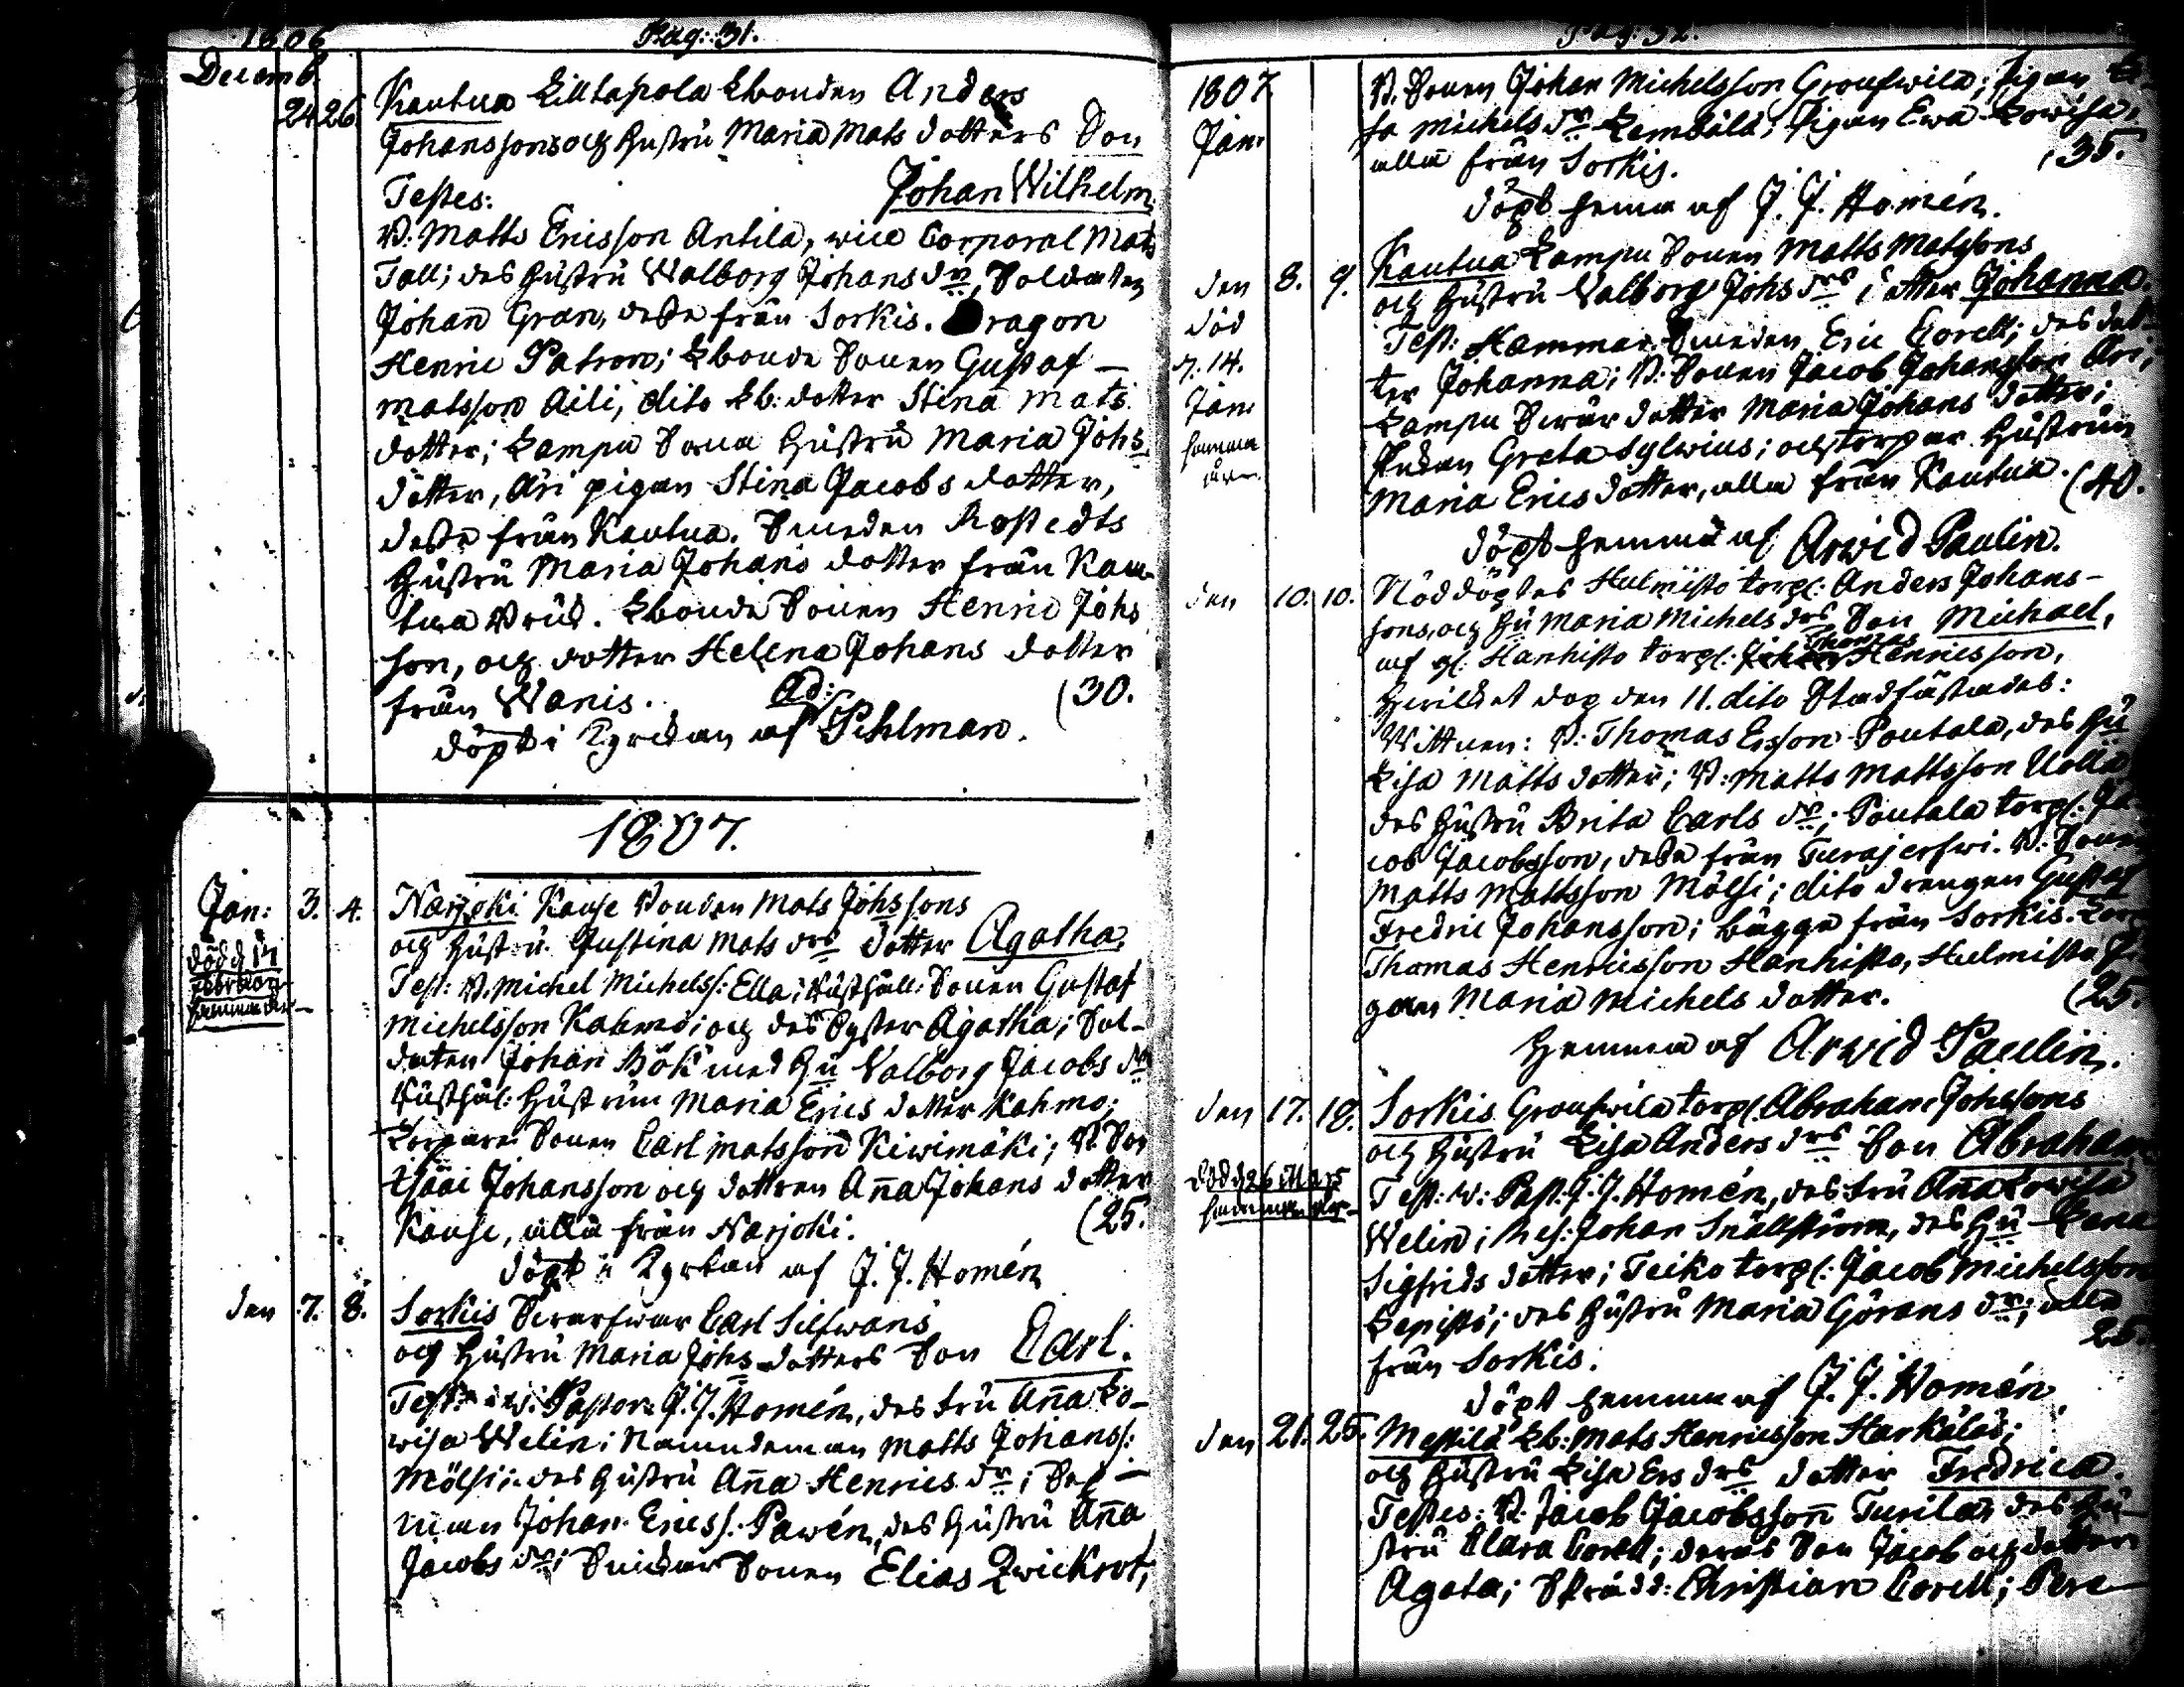 1806
Pag: 31.
Decemb.
24 26 Kautua Lillapola Lbonden Anders
Johanssons och Hustru Maria Mats dotters Son
Testes: Johan Wilhelm
B: Matts Ericsson Antila, vice Corporal Mats
Tall; des Hustru Walborg Johans dr, Soldaten
Johan Gran, desse från Sorkis. Dragon
Henric Patron; Lbonde Sonen Gustaf
Matsson Aili, dito Lb: dotter Stina Mats
dotter; Lampu Sona Hustru Maria Johs
dotter, Ari pigan Stina Jacobs dotter,
desse från Kautua. Smeden Rostedts
Hustru Maria Johans dotter från Kau-
tua Bruk. Lbonde Sonen Henric Johs
son, och dotter Helena Johans dotter
från Wanis. (30.
döpt i Kyrckan af Ad: Pihlman.
1807.
Jan: 3. 4. Narjoki Kause Bonden Mats Johssons
och Hustru Justina Mats drs dotter Agatha.
död d 17
Februari
hemma
Test: B. Michel Michelss: Ella; Rusthåll: Sonen Gustaf
Michelsson Kahmo; och des Syster Agatha; Sol-
daten Johan Böök med Hu Valborg Jacobs dr
Rusthål: Hustrun Maria Erics dotter Kahmo;
Torpare Sonen Carl Matsson Kiwimäki; B. Son
Isaai Johansson och dottren Ana Johans dotter
Kause, alla från Narjoki. (25.
döpt i Kyrkan af J. J. Homén
den 7. 8. Sorkis Swarfwar Carl Silfwans
och Hustru Maria Johs dotters Son Carl.
Test: w: Pastor J. J. Homén, des fru Ana Lo-
wisa Welin; Namndeman Matts Johanss:
Mölsi; des Hustru Ana Henrics dr; Sex-
man Johan Ericss. Pawén, des Hustru Ana
Jacobs dr; Snickar Sonen Elias Qwickrot,
Pag: 32.
1807.
Jan:
B. Sonen Johan Michelsson Groufwila; Pigan Li-
sa Michels dr Lambälä; Pigan Ewa Lowisa,
alla från Sorkis. (35.
döpt hema af J. J. Homén.
den 8. 9. Kautua Lampu Sonen Matts Matssons
och Hustru Valborg Johs drs dotter Johanna.
död
d. 14.
Jan:
hemma
Test: Hammar Smeden Eric Corell; des dot-
ter Johanna; B: Sonen Jacob Johansson Ari;
Lampu Swär dotter Maria Johans dotter;
Enkan Greta Sylwius; och torpar Hustrun
Maria Erics dotter, alla från Kautua. (40.
döpt hemma af Arwid Paulin.
den 10. 10. Nöddöptes Hulmisto torp: Anders Johans-
sons, och Hu Maria Michels drs Son Michael,
af gl: Hanhisto torp: Thomas Henricsson,
hwilcket dop den 11. dito Stadfästades:
Wittnen: B: Thomas Ersson Poutala, des Hu
Lisa Matts dotter; B: Matts Mattsson Uolla
des Hustru Brita Carls dr; Poutala torp: Ja-
cob Jacobsson, desse från Turajerfwi. B: Sonen
Matts Mattsson Mölsi; dito drengen Gustaf
Fredric Johansson; bägge från Sorkis. Torp
Thomas Henricsson Hanhisto, Hulmisto Pi-
gan Maria Michels dotter. (25.
Hemma af Arwid Paulin.
den 17. 18. Sorkis Groufwila torp: Abraham Johssons
och Hustru Lisa Anders drs Son Abraham.
död d 26 Mars
hemma
Test: w: Past: J. J. Homén, des fru Ana Lowisa
Welin; Res: Johan Snällström, des Hu Lena
Sigfrids dotter; Teiko torp: Jacob Michelsson
Lepistö; des Hustru Maria Görans dr; alla
från Sorkis. 25.
döpt hemma af J. J. Homén
den 21. 25. Mestilä Lb: Mats Henricsson Harkälas;
och Hustru Lisa Ers drs dotter Fredrica.
Testes: B. Jacob Jacobsson Turila, des Hu-
stru Clara Corell; deras Son Jacob och dotter
Agata; Skrädd: Christian Corell; Pere